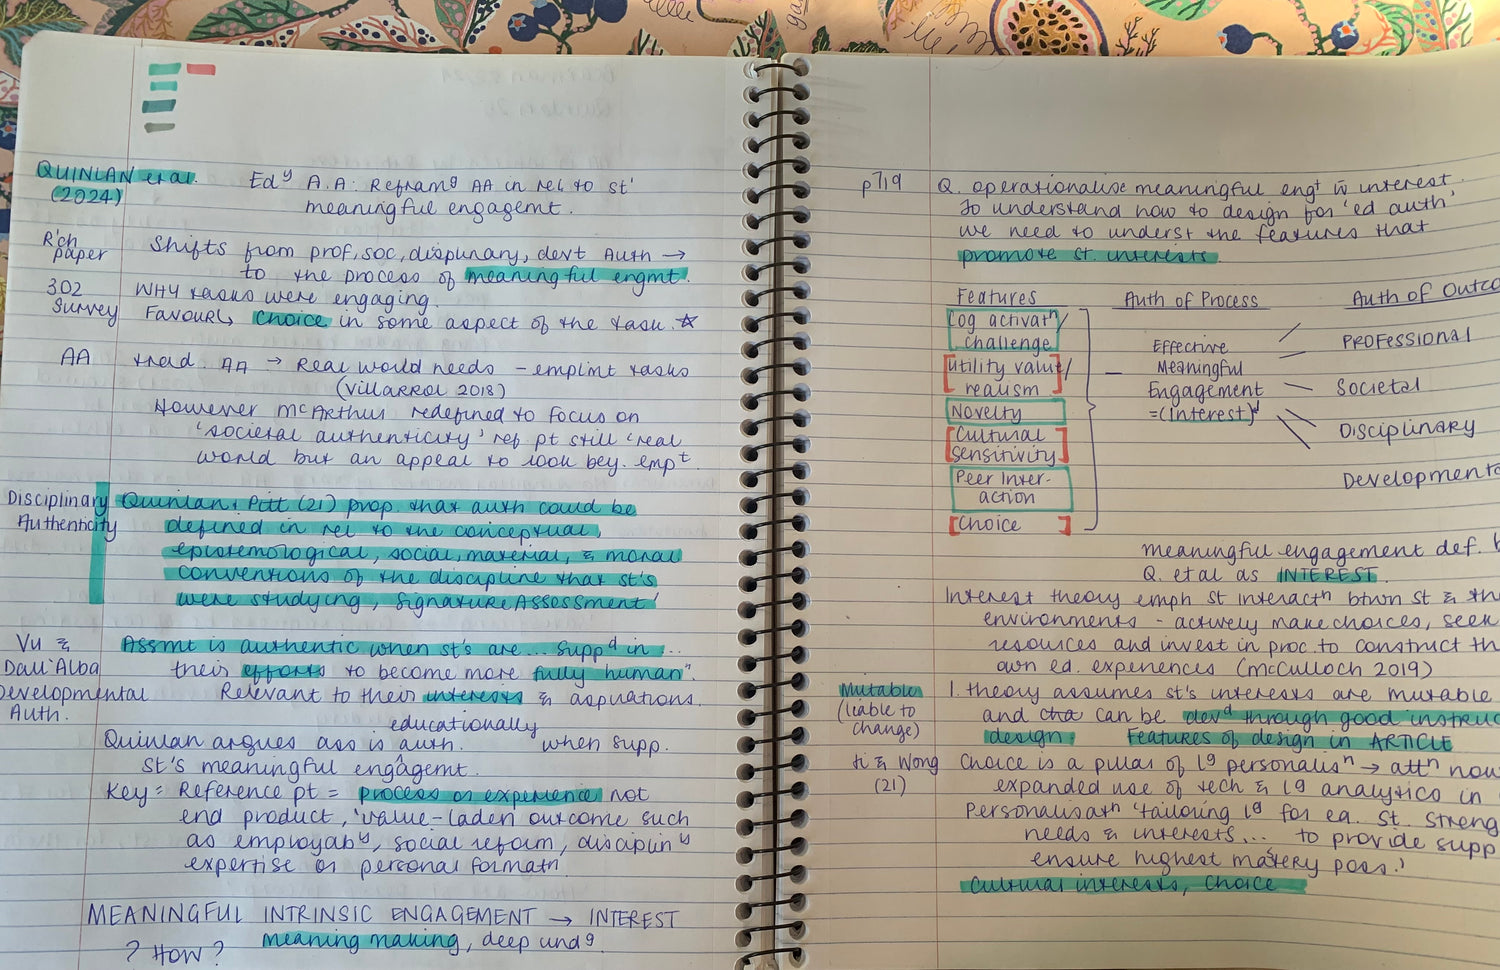 QUINLAN et al.
(2024)
Ed^y A.A: Refram^g AA in rel to st'
meaningful engagemt.
R'ch
paper
Shifts from prof, soc, displinary, devt Auth →
to the process of meaningful engmt.
302
Survey
WHY tasks were engaging.
Favour↳ choice in some aspect of the task. ☆
AA
trad. AA → Real world needs – emplmt tasks
(Villarrol 2018)
However McArthur redefined to focus on
'societal authenticity' ref pt still 'real
world but an appeal to look bey. emp^t
Disciplinary
Authenticity
Quinlan & Pitt (21) prop. that auth could be
defined in rel to the conceptual,
epistemological, social, material, & moral
conventions of the discipline that st's
were studying, 'Signature Assessment'
Vu &
Dall'Alba
Developmental
Auth.
Assmt is authentic when st's are... supp^d in...
their efforts to become more fully human".
Relevant to their interests & aspirations.
educationally
Quinlan argues ass is auth. when supp.
st's meaningful engagemt.
Key = Reference pt = process or experience not
end product, 'value-laden outcome such
as employab^y, social reform, disciplin^y
expertise or personal format^n
MEANINGFUL INTRINSIC ENGAGEMENT → INTEREST
meaning making, deep und^g.
? HOW ?
p719
Q. operationalise meaningful eng^t w̄ interest.
To understand how to design for 'ed auth'
we need to underst the features that
promote st. interests.
Features
Auth of Process
Auth of Outco
Cog activat^n/
challenge
Utility value/
realism
Novelty
Cultural
sensitivity
Peer Inter-
action
Choice
Effective
Meaningful
Engagement
=(Interest)
PROFESSIONAL
Societal
Disciplinary
Developmenta
meaningful engagement def. b
Q. et al as INTEREST.
Interest theory emph st interact^n btwn st & th
environments – actively make choices, seek
resources and invest in proc. to construct th
own ed. experiences (McCulloch 2019)
Mutable
(liable to
change)
I. theory assumes st's interests are mutable
and cha can be dev^d through good instruc
design. Features of design in ARTICLE
Li & Wong
(21)
Choice is a pillar of l^g personalis^n → att^n now
expanded use of tech & l^g analytics in
Personalisat^n 'tailoring l^g for ea. st. streng
needs & interests... to provide supp
ensure highest mastery poss.'
Cultural interests, choice